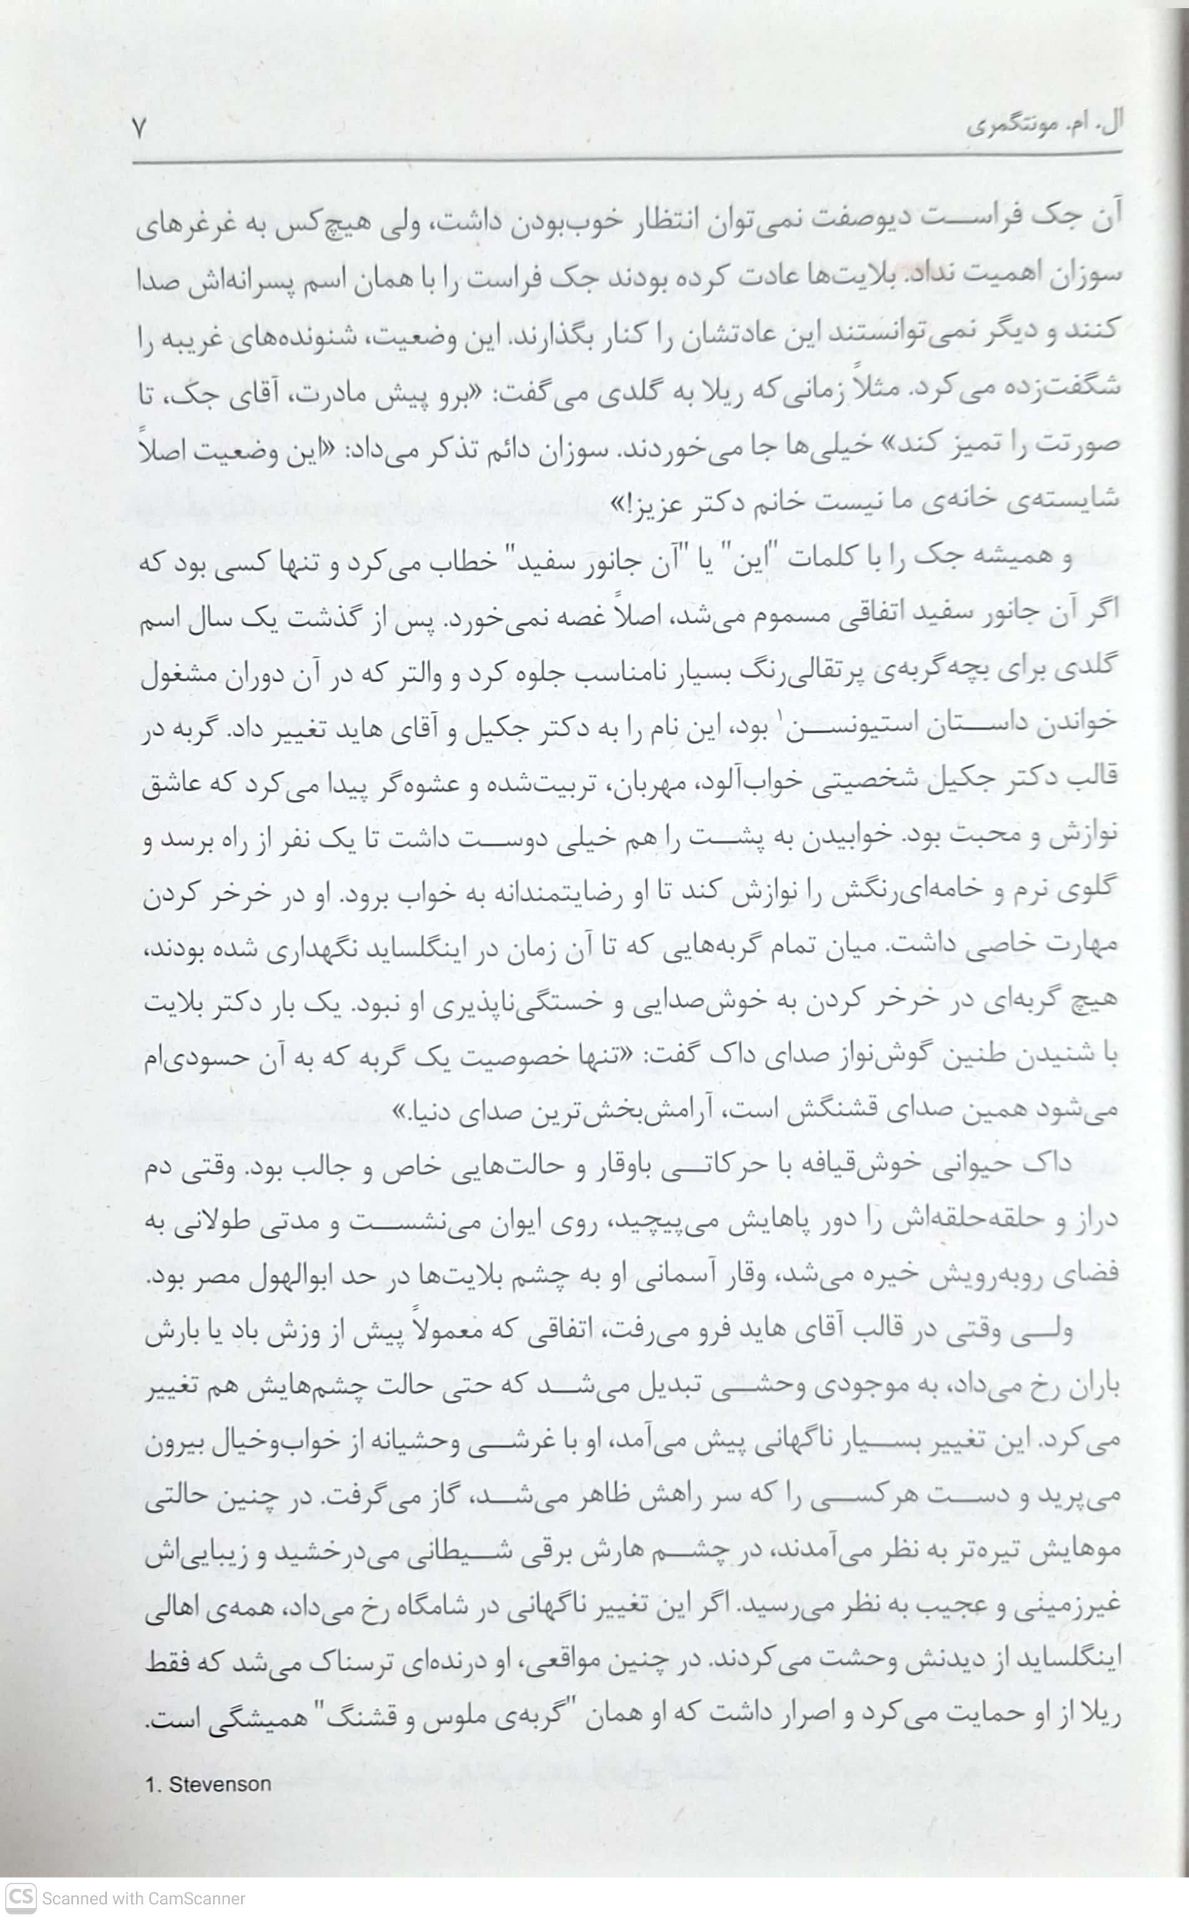 ال. ام. مونتگمری
۷
آن جک فراست دیوصفت نمی‌توان انتظار خوب‌بودن داشت، ولی هیچ‌کس به غرغرهای
سوزان اهمیت نداد. بلایت‌ها عادت کرده بودند جک فراست را با همان اسم پسرانه‌اش صدا
کنند و دیگر نمی‌توانستند این عادتشان را کنار بگذارند. این وضعیت، شنونده‌های غریبه را
شگفت‌زده می‌کرد. مثلاً زمانی‌که ریلا به گلدی می‌گفت: «برو پیش مادرت، آقای جک، تا
صورتت را تمیز کند» خیلی‌ها جا می‌خوردند. سوزان دائم تذکر می‌داد: «این وضعیت اصلاً
شایسته‌ی خانه‌ی ما نیست خانم دکتر عزیز!»
و همیشه جک را با کلمات "این" یا "آن جانور سفید" خطاب می‌کرد و تنها کسی بود که
اگر آن جانور سفید اتفاقی مسموم می‌شد، اصلاً غصه نمی‌خورد. پس از گذشت یک سال اسم
گلدی برای بچه‌گربه‌ی پرتقالی‌رنگ بسیار نامناسب جلوه کرد و والتر که در آن دوران مشغول
خواندن داستان استیونسن۱ بود، این نام را به دکتر جکیل و آقای هاید تغییر داد. گربه در
قالب دکتر جکیل شخصیتی خواب‌آلود، مهربان، تربیت‌شده و عشوه‌گر پیدا می‌کرد که عاشق
نوازش و محبت بود. خوابیدن به پشت را هم خیلی دوست داشت تا یک نفر از راه برسد و
گلوی نرم و خامه‌ای‌رنگش را نوازش کند تا او رضایتمندانه به خواب برود. او در خرخر کردن
مهارت خاصی داشت. میان تمام گربه‌هایی که تا آن زمان در اینگلساید نگهداری شده بودند،
هیچ گربه‌ای در خرخر کردن به خوش‌صدایی و خستگی‌ناپذیری او نبود. یک بار دکتر بلایت
با شنیدن طنین گوش‌نواز صدای داک گفت: «تنها خصوصیت یک گربه که به آن حسودی‌ام
می‌شود همین صدای قشنگش است، آرامش‌بخش‌ترین صدای دنیا.»
داک حیوانی خوش‌قیافه با حرکاتی باوقار و حالت‌هایی خاص و جالب بود. وقتی دم
دراز و حلقه‌حلقه‌اش را دور پاهایش می‌پیچید، روی ایوان می‌نشست و مدتی طولانی به
فضای روبه‌رویش خیره می‌شد، وقار آسمانی او به چشم بلایت‌ها در حد ابوالهول مصر بود.
ولی وقتی در قالب آقای هاید فرو می‌رفت، اتفاقی که معمولاً پیش از وزش باد یا بارش
باران رخ می‌داد، به موجودی وحشی تبدیل می‌شد که حتی حالت چشم‌هایش هم تغییر
می‌کرد. این تغییر بسیار ناگهانی پیش می‌آمد، او با غرشی وحشیانه از خواب‌وخیال بیرون
می‌پرید و دست هرکسی را که سر راهش ظاهر می‌شد، گاز می‌گرفت. در چنین حالتی
موهایش تیره‌تر به نظر می‌آمدند، در چشم هارش برقی شیطانی می‌درخشید و زیبایی‌اش
غیرزمینی و عجیب به نظر می‌رسید. اگر این تغییر ناگهانی در شامگاه رخ می‌داد، همه‌ی اهالی
اینگلساید از دیدنش وحشت می‌کردند. در چنین مواقعی، او درنده‌ای ترسناک می‌شد که فقط
ریلا از او حمایت می‌کرد و اصرار داشت که او همان "گربه‌ی ملوس و قشنگ" همیشگی است.
1. Stevenson
CS Scanned with CamScanner